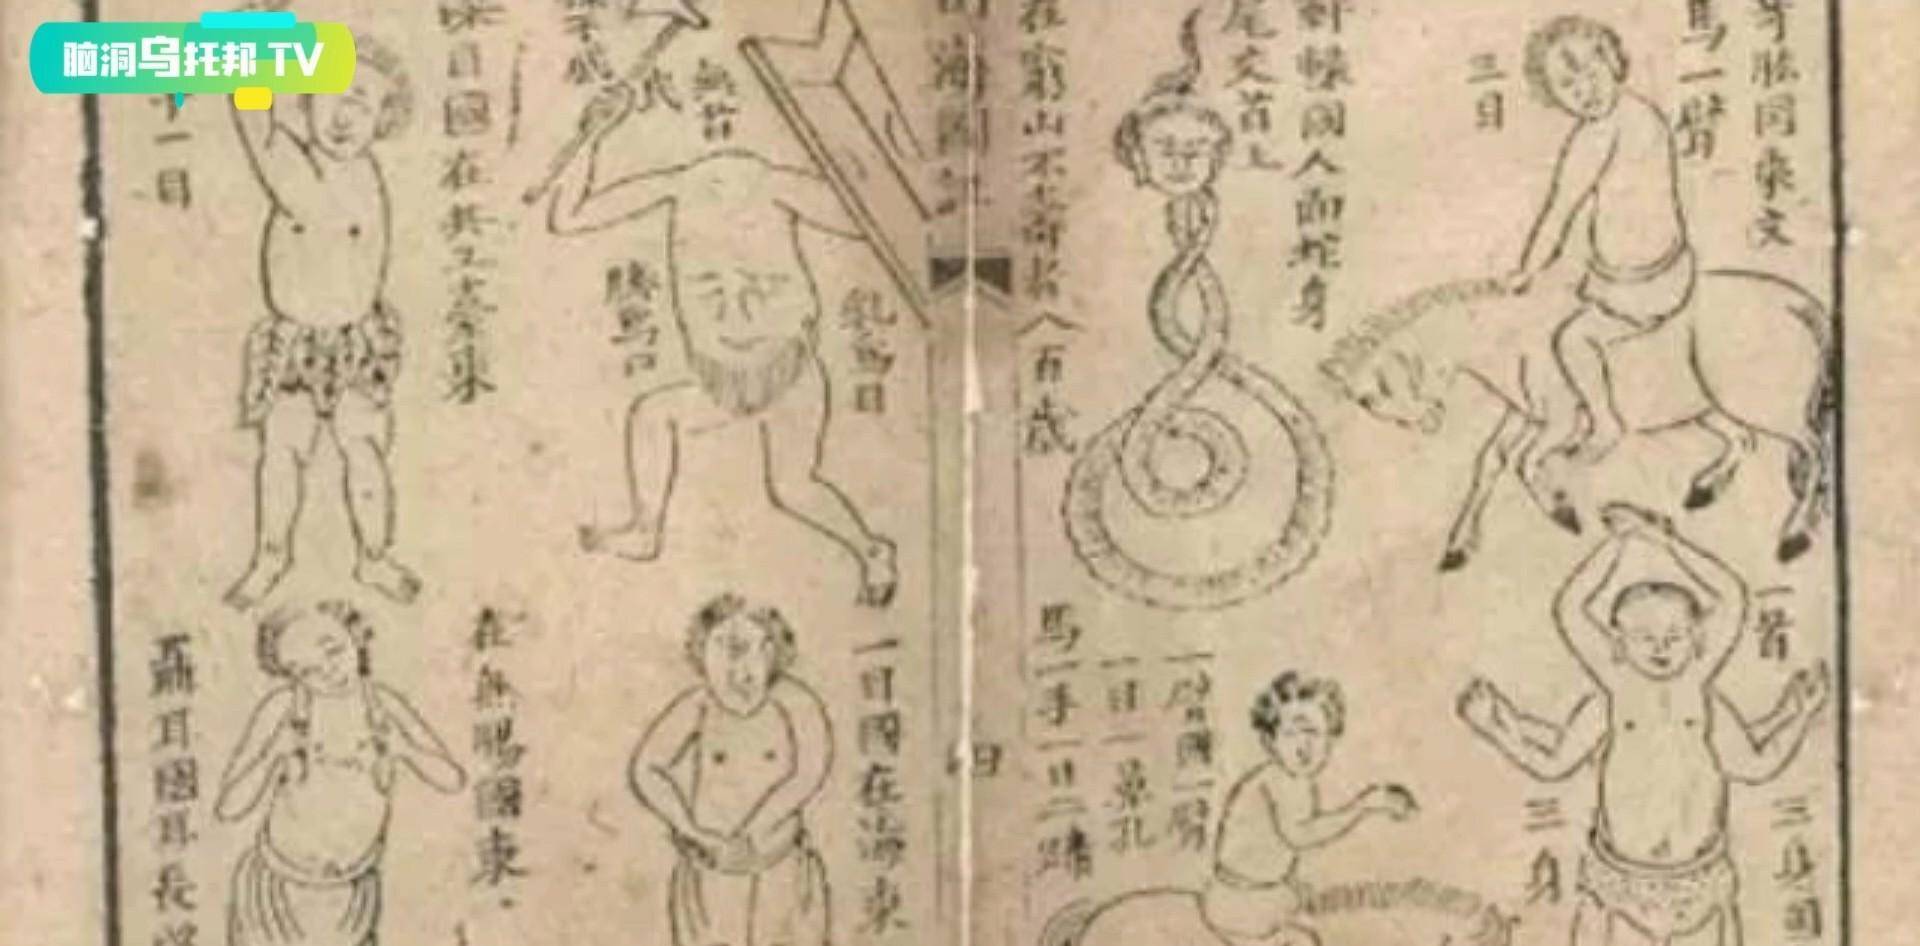 脑洞乌托邦 TV
奇肱同乘文
馬一臂
三目
軒轅國人面蛇身
尾交首上
在窮山不壽者八百歲
一首
三身
三身國
一臂國一臂
一目一鼻孔
馬一手一目二蹄
四
無首
乳為目
臍為口
一目國在海東
在無腸國東
目國在共工臺東
一目
聶耳國耳長